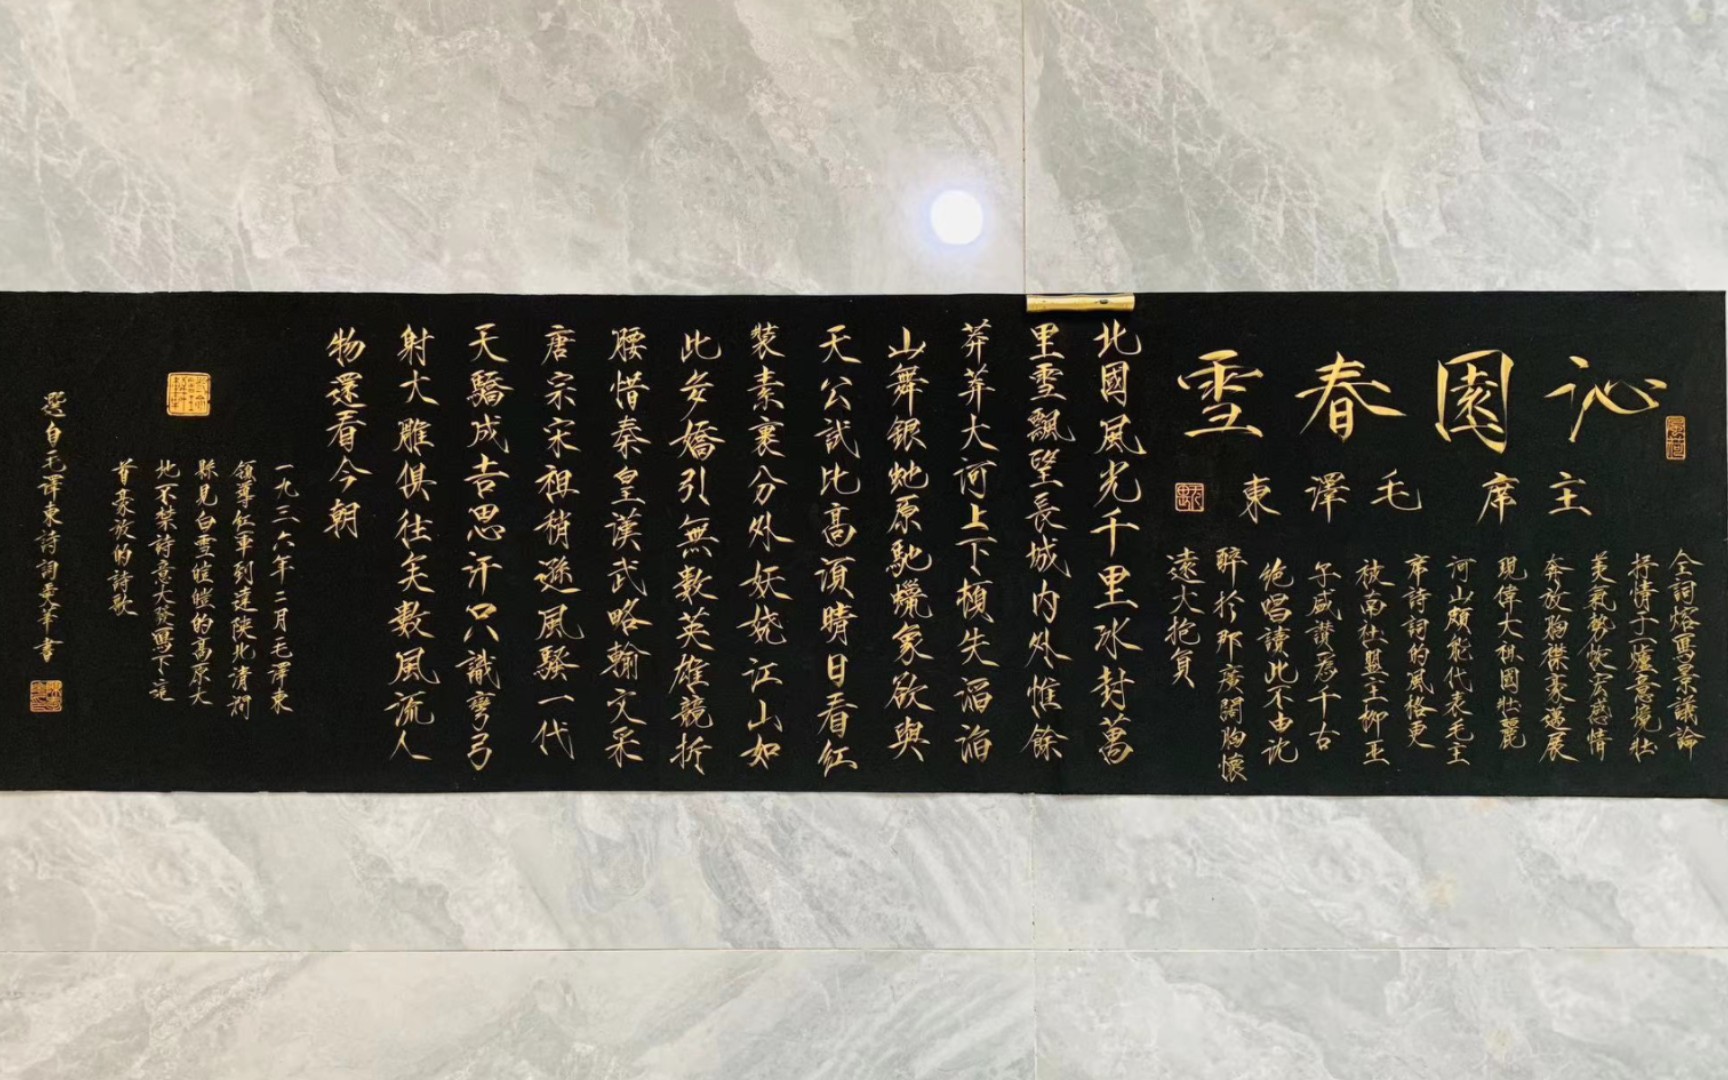 沁園春雪
主席毛澤東
全詞熔寫景議論
抒情于一爐意境壯
美氣勢恢宏感情
奔放胸襟豪邁展
現偉大祖國壯麗
河山頗能代表毛主
席詩詞的風格更
被南社盟主柳亚
子盛讚为千古
绝唱讀此不由沈
醉於那廣闊胸懷
遠大抱負
北國風光千里冰封萬
里雪飄望長城內外惟餘
莽莽大河上下頓失滔滔
山舞銀虵原馳蠟象欲與
天公試比高須晴日看紅
裝素裹分外妖娆江山如
此多嬌引無數英雄競折
腰惜秦皇漢武略輸文采
唐宗宋祖稍遜風騷一代
天驕成吉思汗只識彎弓
射大雕俱往矣數風流人
物還看今朝
一九三六年二月毛澤東
領導红軍到達陝北清澗
縣見白雪皚皚的高原大
地不禁詩意大發寫下這
首豪放的詩歌
自毛澤東詩詞 書